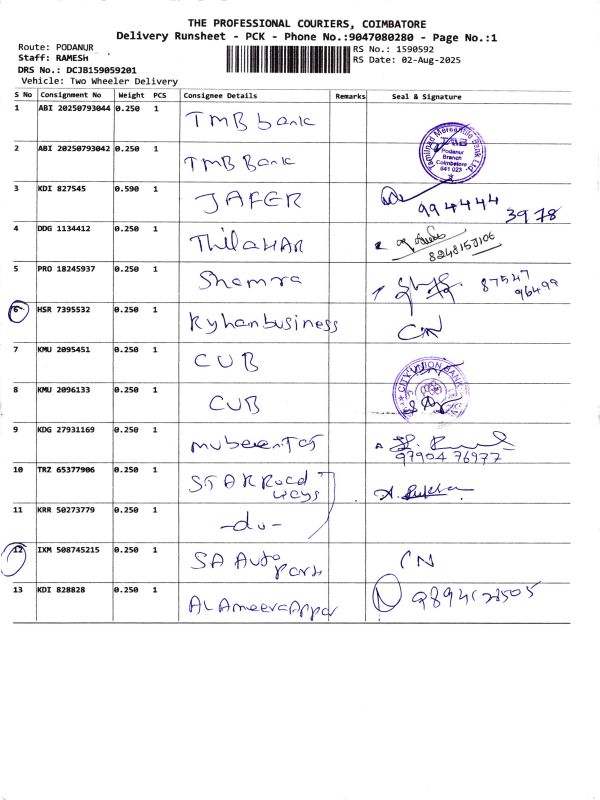 THE PROFESSIONAL COURIERS, COIMBATORE
Delivery Runsheet - PCK - Phone No.:9047080280 - Page No.:1
Route: PODANUR
RS No.: 1590592
Staff: RAMESH
RS Date: 02-Aug-2025
DRS No.: DCJB159059201
Vehicle: Two Wheeler Delivery
S No Consignment No Weight PCS Consignee Details Remarks Seal & Signature
1 ABI 20250793044 0.250 1 TMB bank
2 ABI 20250793042 0.250 1 TMB Bank
Tamilnad Mercantile Bank Ltd
TMB
Podanur
Branch
Coimbatore
641 023
3 KDI 827545 0.590 1 JAFER 994444
3978
4 DDG 1134412 0.250 1 ThilaHAR
5 PRO 18245937 0.250 1 Shamra 87547
96499
6 HSR 7395532 0.250 1 Ryhanbusiness CN
7 KMU 2095451 0.250 1 CUB
CITY UNION BANK
8 KMU 2096133 0.250 1 CUB
9 KDG 27931169 0.250 1
97904 76977
10 TRZ 65377906 0.250 1 STAR Road
ways
11 KRR 50273779 0.250 1 -do-
12 IXM 508745215 0.250 1 SA Auto CN
parts
13 KDI 828828 0.250 1 AL Ameera Appa